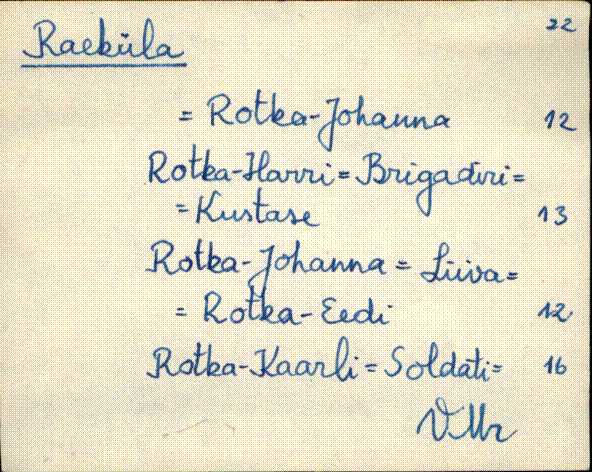 22
Raeküla
= Rotka-Johanna 12
Rotka-Harri = Brigadiri =
= Kustase 13
Rotka-Johanna = Liiva =
= Rotka-Eedi 12
Rotka-Kaarli = Soldati = 16
VMr